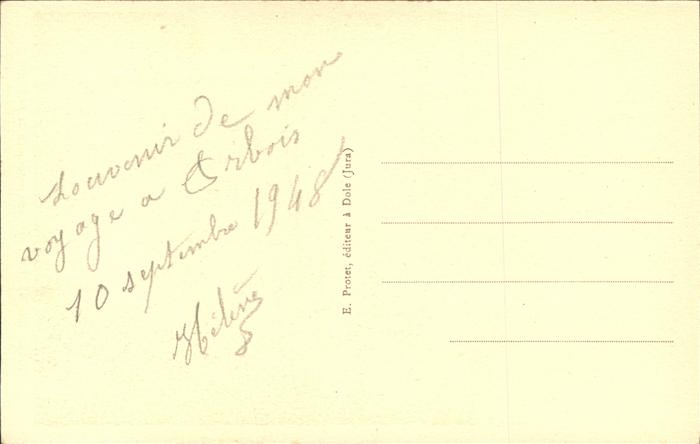 souvenir de mon
voyage a Arbois
10 septembre 1948
Hélène
E. Protet, éditeur à Dole (Jura)